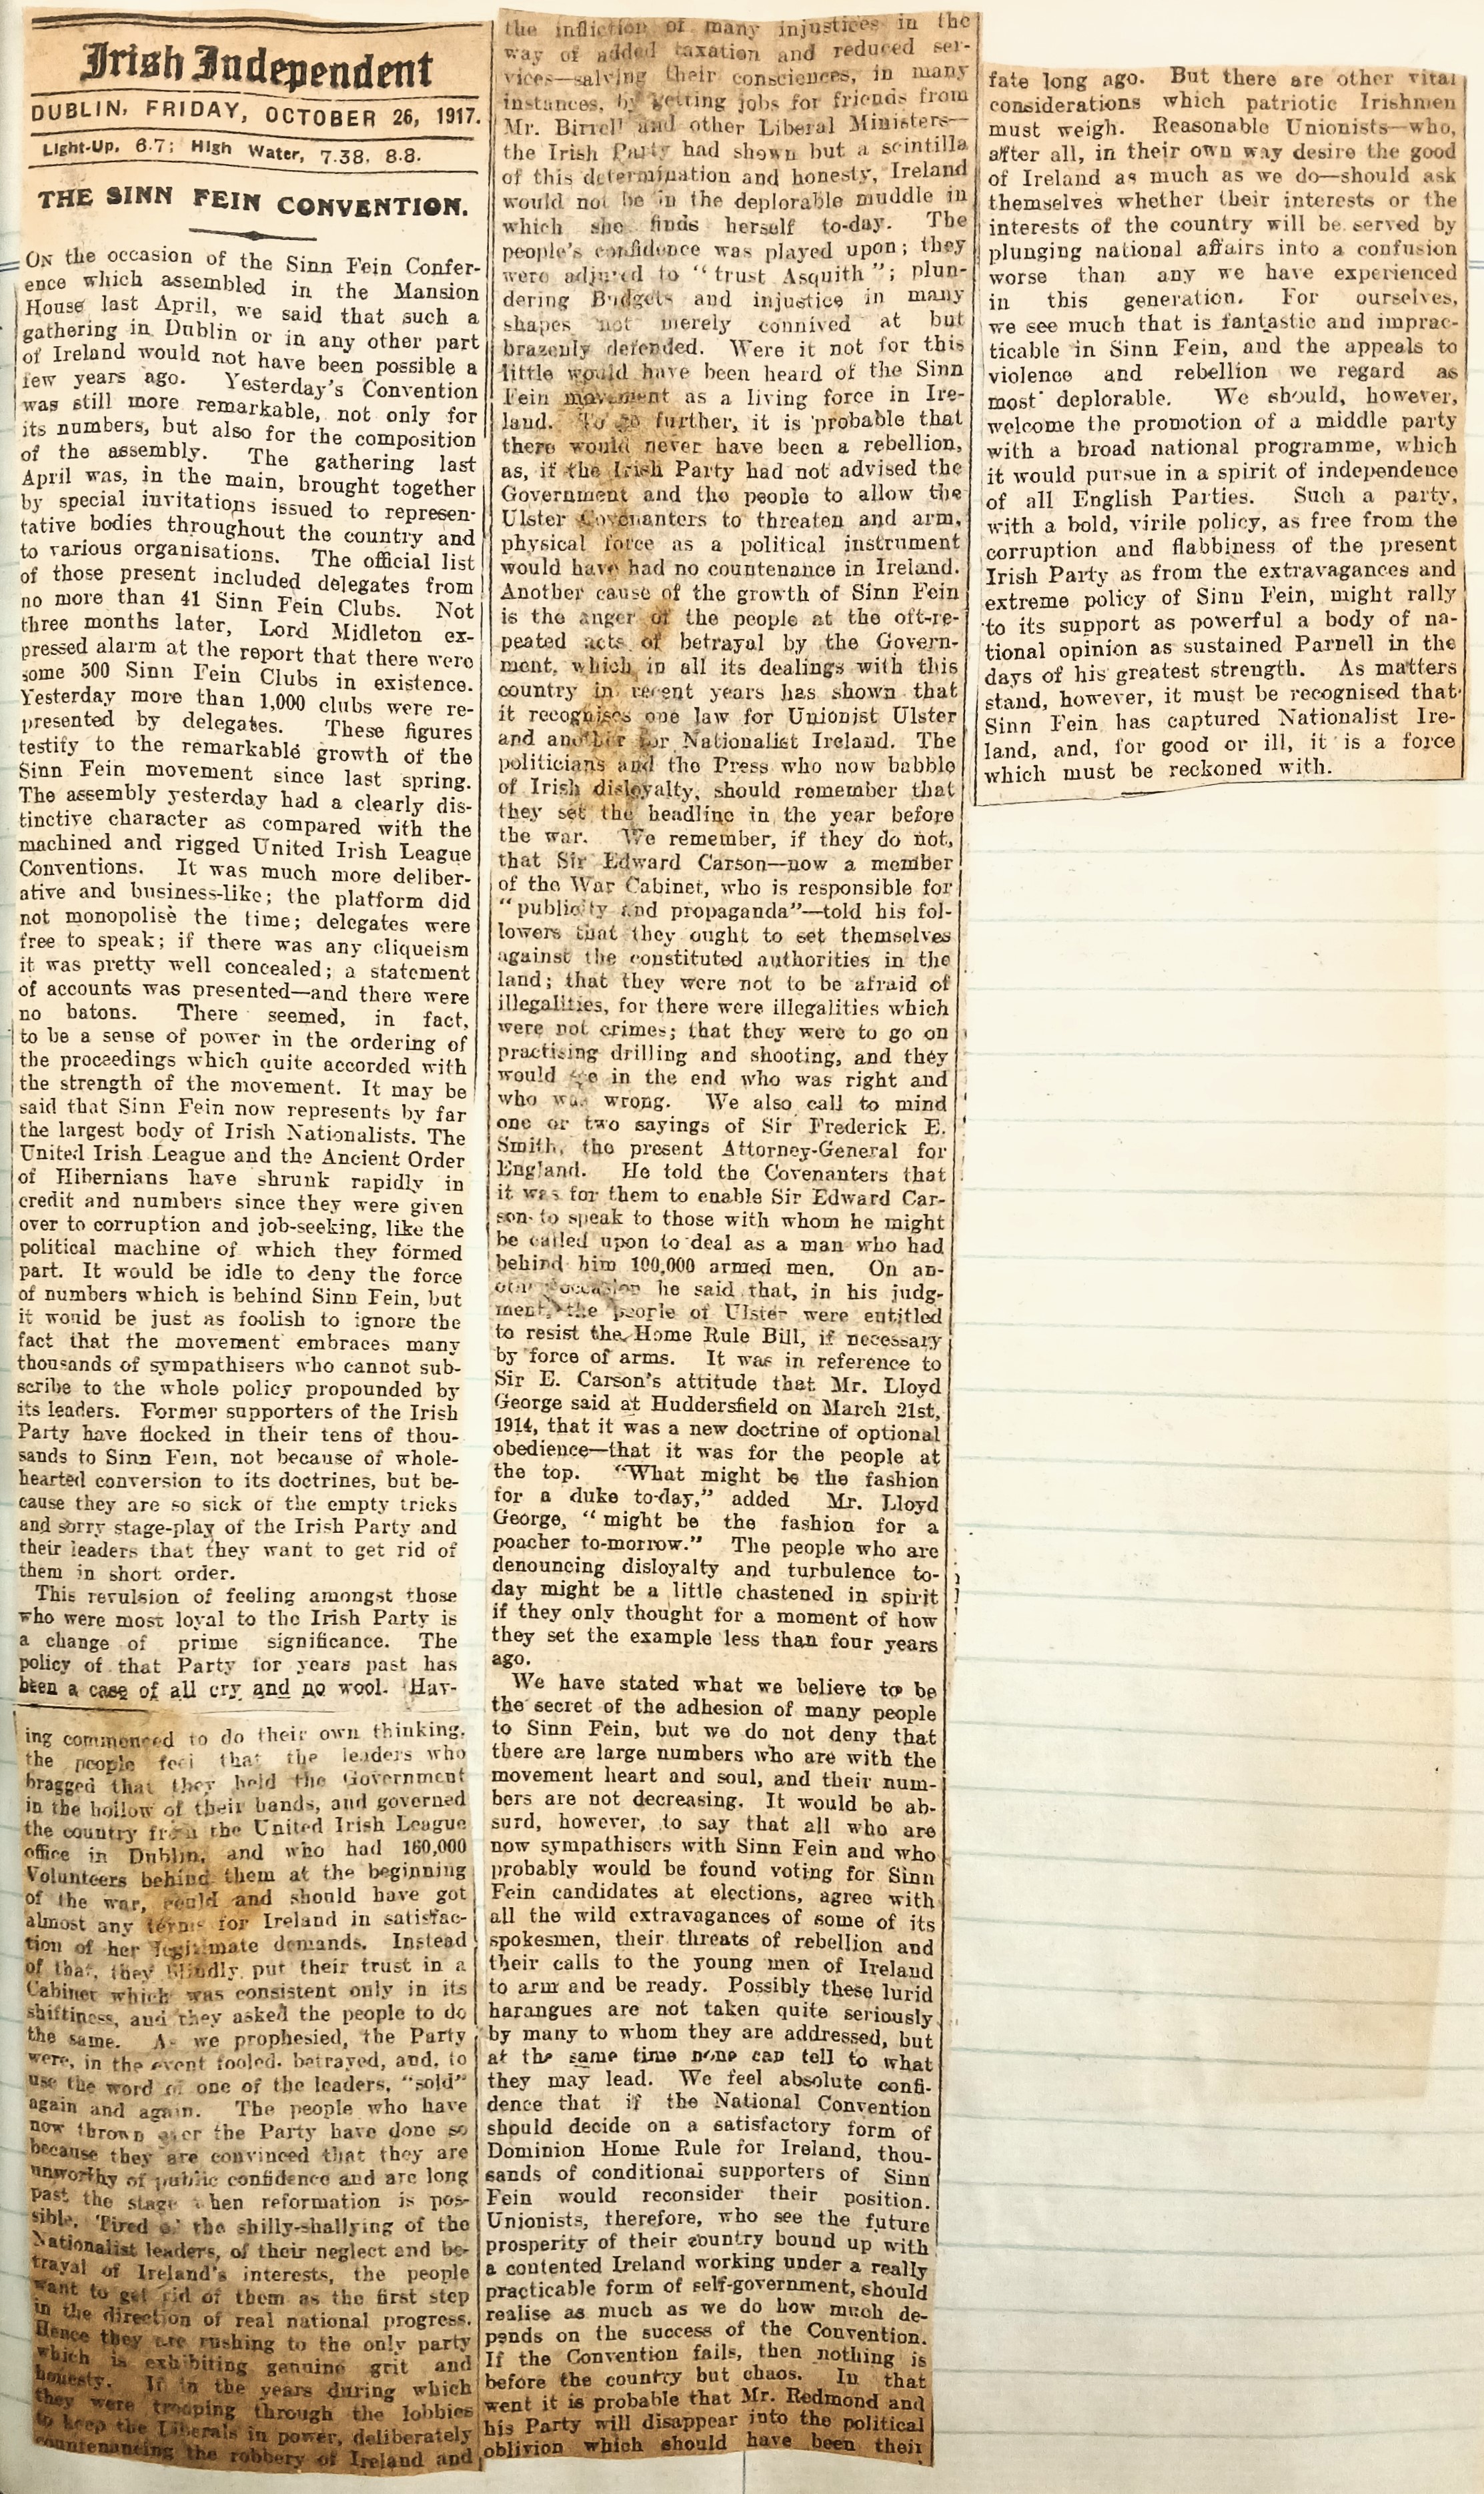 Irish Independent
DUBLIN, FRIDAY, OCTOBER 26, 1917.
Light-Up, 6.7; High Water, 7.38, 8.8.
THE SINN FEIN CONVENTION.
ON the occasion of the Sinn Fein Confer-
ence which assembled in the Mansion
House last April, we said that such a
gathering in Dublin or in any other part
of Ireland would not have been possible a
few years ago. Yesterday's Convention
was still more remarkable, not only for
its numbers, but also for the composition
of the assembly. The gathering last
April was, in the main, brought together
by special invitations issued to represen-
tative bodies throughout the country and
to various organisations. The official list
of those present included delegates from
no more than 41 Sinn Fein Clubs. Not
three months later, Lord Midleton ex-
pressed alarm at the report that there were
some 500 Sinn Fein Clubs in existence.
Yesterday more than 1,000 clubs were re-
presented by delegates. These figures
testify to the remarkable growth of the
Sinn Fein movement since last spring.
The assembly yesterday had a clearly dis-
tinctive character as compared with the
machined and rigged United Irish League
Conventions. It was much more deliber-
ative and business-like; the platform did
not monopolise the time; delegates were
free to speak; if there was any cliqueism
it was pretty well concealed; a statement
of accounts was presented—and there were
no batons. There seemed, in fact,
to be a sense of power in the ordering of
the proceedings which quite accorded with
the strength of the movement. It may be
said that Sinn Fein now represents by far
the largest body of Irish Nationalists. The
United Irish League and the Ancient Order
of Hibernians have shrunk rapidly in
credit and numbers since they were given
over to corruption and job-seeking, like the
political machine of which they formed
part. It would be idle to deny the force
of numbers which is behind Sinn Fein, but
it would be just as foolish to ignore the
fact that the movement embraces many
thousands of sympathisers who cannot sub-
scribe to the whole policy propounded by
its leaders. Former supporters of the Irish
Party have flocked in their tens of thou-
sands to Sinn Fein, not because of whole-
hearted conversion to its doctrines, but be-
cause they are so sick of the empty tricks
and sorry stage-play of the Irish Party and
their leaders that they want to get rid of
them in short order.
This revulsion of feeling amongst those
who were most loyal to the Irish Party is
a change of prime significance. The
policy of that Party for years past has
been a case of all cry and no wool. Hav-
ing commenced to do their own thinking,
the people feel that the leaders who
bragged that they held the Government
in the hollow of their hands, and governed
the country from the United Irish League
office in Dublin, and who had 160,000
Volunteers behind them at the beginning
of the war, could and should have got
almost any terms for Ireland in satisfac-
tion of her legitimate demands. Instead
of that, they blindly put their trust in a
Cabinet which was consistent only in its
shiftiness, and they asked the people to do
the same. As we prophesied, the Party
were, in the event fooled, betrayed, and, to
use the word of one of the leaders, "sold"
again and again. The people who have
now thrown over the Party have done so
because they are convinced that they are
unworthy of public confidence and are long
past the stage when reformation is pos-
sible. Tired of the shilly-shallying of the
Nationalist leaders, of their neglect and be-
trayal of Ireland's interests, the people
want to get rid of them as the first step
in the direction of real national progress.
Hence they are rushing to the only party
which is exhibiting genuine grit and
honesty. If in the years during which
they were trooping through the lobbies
to keep the Liberals in power, deliberately
countenancing the robbery of Ireland and
the infliction of many injustices in the
way of added taxation and reduced ser-
vices—salving their consciences, in many
instances, by getting jobs for friends from
Mr. Birrell and other Liberal Ministers—
the Irish Party had shown but a scintilla
of this determination and honesty, Ireland
would not be in the deplorable muddle in
which she finds herself to-day. The
people's confidence was played upon; they
were adjured to "trust Asquith"; plun-
dering Budgets and injustice in many
shapes not merely connived at but
brazenly defended. Were it not for this
little would have been heard of the Sinn
Fein movement as a living force in Ire-
land. To go further, it is probable that
there would never have been a rebellion,
as, if the Irish Party had not advised the
Government and the people to allow the
Ulster Covenanters to threaten and arm,
physical force as a political instrument
would have had no countenance in Ireland.
Another cause of the growth of Sinn Fein
is the anger of the people at the oft-re-
peated acts of betrayal by the Govern-
ment, which in all its dealings with this
country in recent years has shown that
it recognises one law for Unionist Ulster
and another for Nationalist Ireland. The
politicians and the Press who now babble
of Irish disloyalty, should remember that
they set the headline in the year before
the war. We remember, if they do not,
that Sir Edward Carson—now a member
of the War Cabinet, who is responsible for
"publicity and propaganda"—told his fol-
lowers that they ought to set themselves
against the constituted authorities in the
land; that they were not to be afraid of
illegalities, for there were illegalities which
were not crimes; that they were to go on
practising drilling and shooting, and they
would see in the end who was right and
who was wrong. We also call to mind
one or two sayings of Sir Frederick E.
Smith, the present Attorney-General for
England. He told the Covenanters that
it was for them to enable Sir Edward Car-
son to speak to those with whom he might
be called upon to deal as a man who had
behind him 100,000 armed men. On an-
other occasion he said that, in his judg-
ment, the people of Ulster were entitled
to resist the Home Rule Bill, if necessary
by force of arms. It was in reference to
Sir E. Carson's attitude that Mr. Lloyd
George said at Huddersfield on March 21st,
1914, that it was a new doctrine of optional
obedience—that it was for the people at
the top. "What might be the fashion
for a duke to-day," added Mr. Lloyd
George, "might be the fashion for a
poacher to-morrow." The people who are
denouncing disloyalty and turbulence to-
day might be a little chastened in spirit
if they only thought for a moment of how
they set the example less than four years
ago.
We have stated what we believe to be
the secret of the adhesion of many people
to Sinn Fein, but we do not deny that
there are large numbers who are with the
movement heart and soul, and their num-
bers are not decreasing. It would be ab-
surd, however, to say that all who are
now sympathisers with Sinn Fein and who
probably would be found voting for Sinn
Fein candidates at elections, agree with
all the wild extravagances of some of its
spokesmen, their threats of rebellion and
their calls to the young men of Ireland
to arm and be ready. Possibly these lurid
harangues are not taken quite seriously
by many to whom they are addressed, but
at the same time none can tell to what
they may lead. We feel absolute confi-
dence that if the National Convention
should decide on a satisfactory form of
Dominion Home Rule for Ireland, thou-
sands of conditional supporters of Sinn
Fein would reconsider their position.
Unionists, therefore, who see the future
prosperity of their country bound up with
a contented Ireland working under a really
practicable form of self-government, should
realise as much as we do how much de-
pends on the success of the Convention.
If the Convention fails, then nothing is
before the country but chaos. In that
went it is probable that Mr. Redmond and
his Party will disappear into the political
oblivion which should have been their
fate long ago. But there are other vital
considerations which patriotic Irishmen
must weigh. Reasonable Unionists—who,
after all, in their own way desire the good
of Ireland as much as we do—should ask
themselves whether their interests or the
interests of the country will be served by
plunging national affairs into a confusion
worse than any we have experienced
in this generation. For ourselves,
we see much that is fantastic and imprac-
ticable in Sinn Fein, and the appeals to
violence and rebellion we regard as
most deplorable. We should, however,
welcome the promotion of a middle party
with a broad national programme, which
it would pursue in a spirit of independence
of all English Parties. Such a party,
with a bold, virile policy, as free from the
corruption and flabbiness of the present
Irish Party as from the extravagances and
extreme policy of Sinn Fein, might rally
to its support as powerful a body of na-
tional opinion as sustained Parnell in the
days of his greatest strength. As matters
stand, however, it must be recognised that
Sinn Fein has captured Nationalist Ire-
land, and, for good or ill, it is a force
which must be reckoned with.